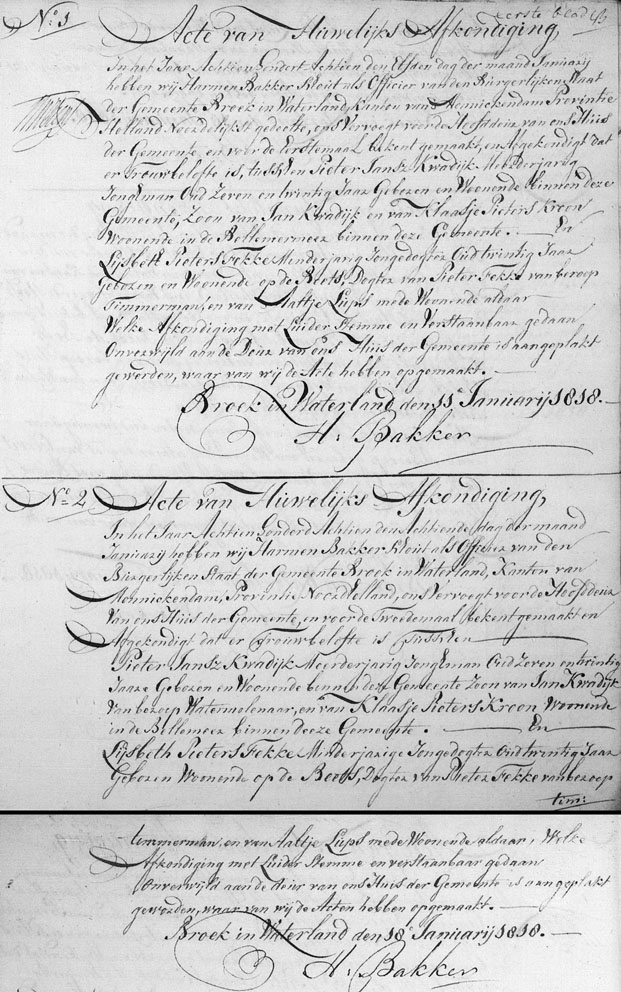 eerste blad
No. 1 Acte van Huwelijks Afkondiging,
In het Jaar Achtien hondert Achtien den Elfden dag der maand Januarij
hebben wij Harmen Bakker Schout als Officier van den Burgerlijken Staat
der Gemeente Broek in Waterland, Kanton van Monnickendam, Provintie
Holland Noordelijkst gedeelte, ons Vervoegt voor de Hoofddeur van ons Huis
der Gemeente, en voor de Eerstemaal bekent gemaakt, en Afgekondigt dat
er Trouwbelofte is, tusschen Pieter Jansz Kwadijk. Meerderjarig
Jongman Oud Zeven en twintig Jaar Geboren en Woonende binnen deze
Gemeente, Zoon van Jan Kwadijk en van Klaasje Pieters Kroon
Woonende in de Bellemermeer binnen deze Gemeente. — En
Lijsbett Pieters Fekke Minderjarig Jongedogter Oud twintig Jaar
Geboren en Woonende op de Beets, Dogter van Pieter Fekke van beroep
Timmerman, en van Aaltje Lups mede Woonende aldaar
Welke Afkondiging met Luider Stemme en Verstaanbaar gedaan
Onverwijld aan de Deur van Ons Huis der Gemeente is aangeplakt
geworden, waar van wij de Acte hebben opgemaakt. —
Broek in Waterland den 11e Januarij 1818. —
H: Bakker
No. 2 Acte van Huwelijks Afkondiging,
In het Jaar Achtien honderd Achtien den Achtiende dag der maand
Januarij hebben wij Harmen Bakker Schout als Officier van den
Burgerlijken Staat der Gemeente Broek in Waterland, Kanton van
Monnickendam, Provintie Noord Holland, ons Vervoegt voor de Hoofddeur
Van ons Huis der Gemeente, en voor de Tweedemaal bekent gemaakt en
Afgekondigt dat er Trouwbelofte is Tusschen —
Pieter Jansz Kwadijk Meerderjarig Jongman Oud Zeven en twintig
Jaare Geboren en Woonende binnen deze Gemeente Zoon van Jan Kwadijk
van beroep Watermolenaar, en van Klaasje Pieters Kroon Woonende
in de Bellemeer binnen deeze Gemeente. — En —
Lijsbeth Pieters Fekke Minderjarige Jongedogter Oud twintig Jaar
Geboren Woonende op de Beets, Dogter van Pieter Fekke van beroep
tim:
timmerman, en van Aaltje Lups mede Woonende aldaar, Welke
Afkondiging met Luider Stemme en verstaanbaar gedaan
Onverwijld aan de deur van ons Huis der Gemeente is aangeplakt
geworden, waar van wij de Acten hebben opgemaakt. —
Broek in Waterland den 18e Januarij 1818. —
H: Bakker